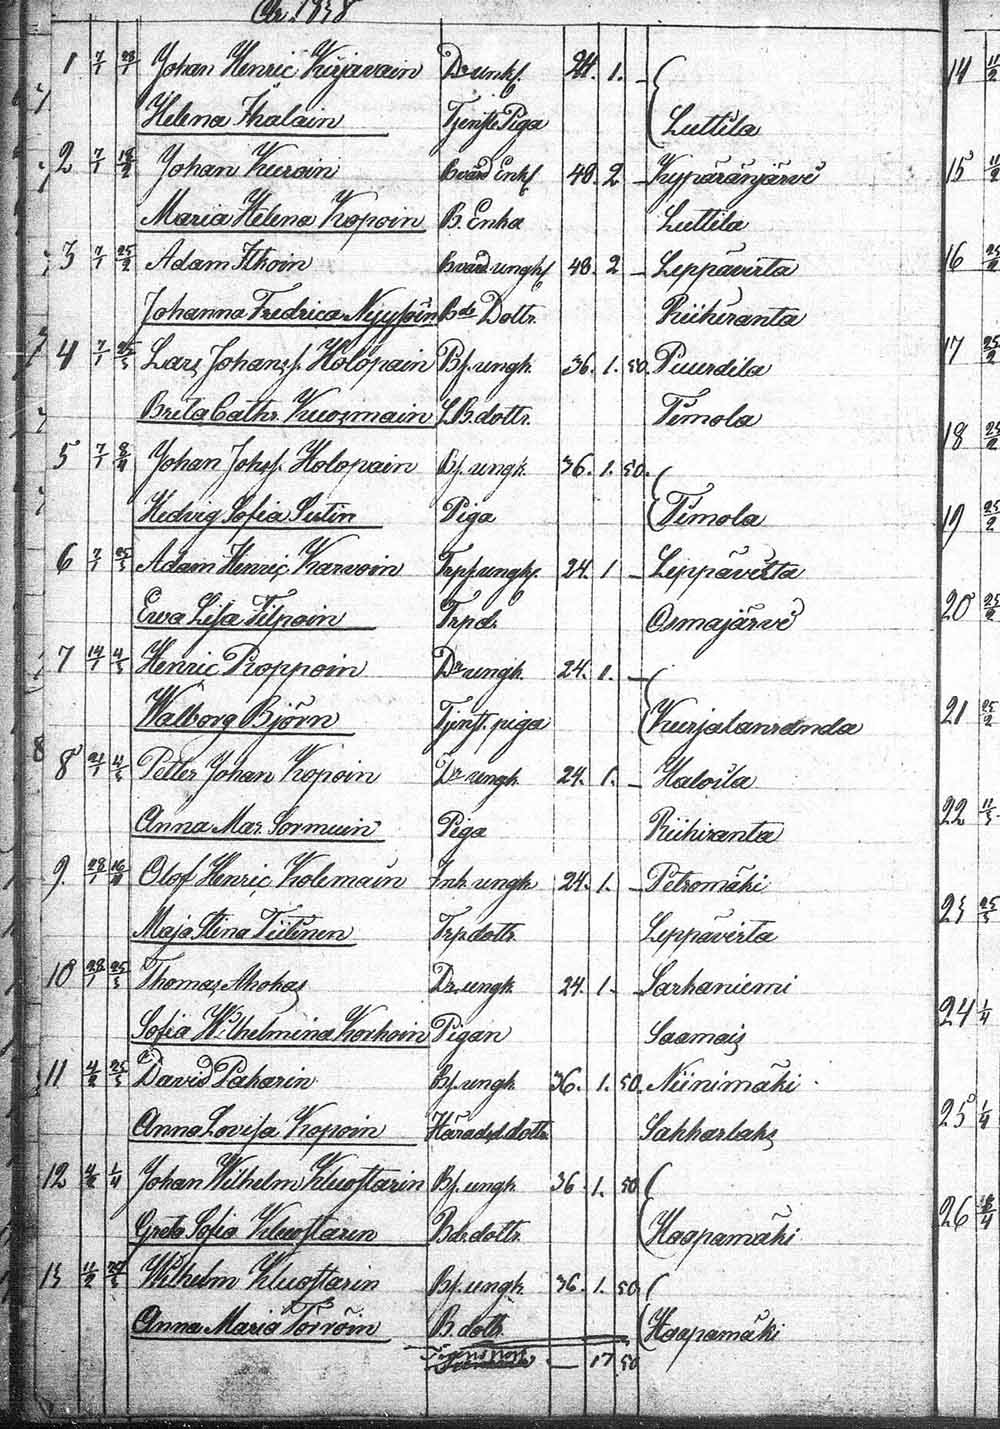 År 1838
1 7/1 28/1 Johan Henric Kirjavain Dr unkl. 24. 1. –
Helena Ihalain Tjenste Piga Luttila
2 7/1 18/2 Johan Kuroin Bvärd Enkl 48. 2 – Kypäränjärvi
Maria Helena Kopoin B. Enka Luttila
3 7/1 25/2 Adam Itkoin Bvärd. ungk 48. 2 – Leppävirta
Johanna Fredrica Nyyssöin Bde Dottr. Riihiranta
4 7/1 25/3 Lars Johanss. Holopain Bf. ungk 36. 1. 50. Puurdila
Brita Cathr. Kuosmain L.B. dottr. Timola
5 7/1 8/4 Johan Johss. Holopain Bf. ungk. 36. 1. 50.
Hedvig Sofia Sutin Piga Timola
6 7/1 25/3 Adam Henric Karvoin Trpf. ungk. 24. 1 – Leppävirta
Ewa Lisa Filpoin Trpdr. Osmajärvi
7 14/1 4/3 Henric Proppoin Dr ungk 24. 1. –
Walborg Björn Tjenst. piga Kurjalanranda
8 21/1 4/3 Petter Johan Kopoin Dr ungk 24. 1. – Haloila
Anna Mar. Sormuin Piga Riihiranta
9. 28/1 Olof Henric Kolemain Inh ungk 24. 1. – Petromäki
Maja Stina Tiitinen Trpdottr. Leppävirta
10 28/1 25/3 Thomas Ahokas Dr ungk 24. 1. Sarkaniemi
Sofia Wilhelmina Korhoin Pigan Saamais
11 4/2 25/3 David Pakarin Bf. ungk 36. 1. 50. Niinimäki
Anna Lovisa Kopoin Häradsd. dottr Sahkarlaks
12 4/2 1/4 Johan Wilhelm Kluftarin Bf. ungk 36. 1. 50
Greta Sofia Kluftarin Bdr. dottr. Haapamäki
13 11/2 Wilhelm Kluftarin Bf. ungk 36. 1. 50.
Anna Maria Törröin B. dottr. Haapamäki
– 17 50
14 11/2
15 11/2
16 25/2
17 25/2
18 25/2
19 25/2
20 25/2
21 25/2
22 11/3
23 25/3
24 1/4
25 1/4
26